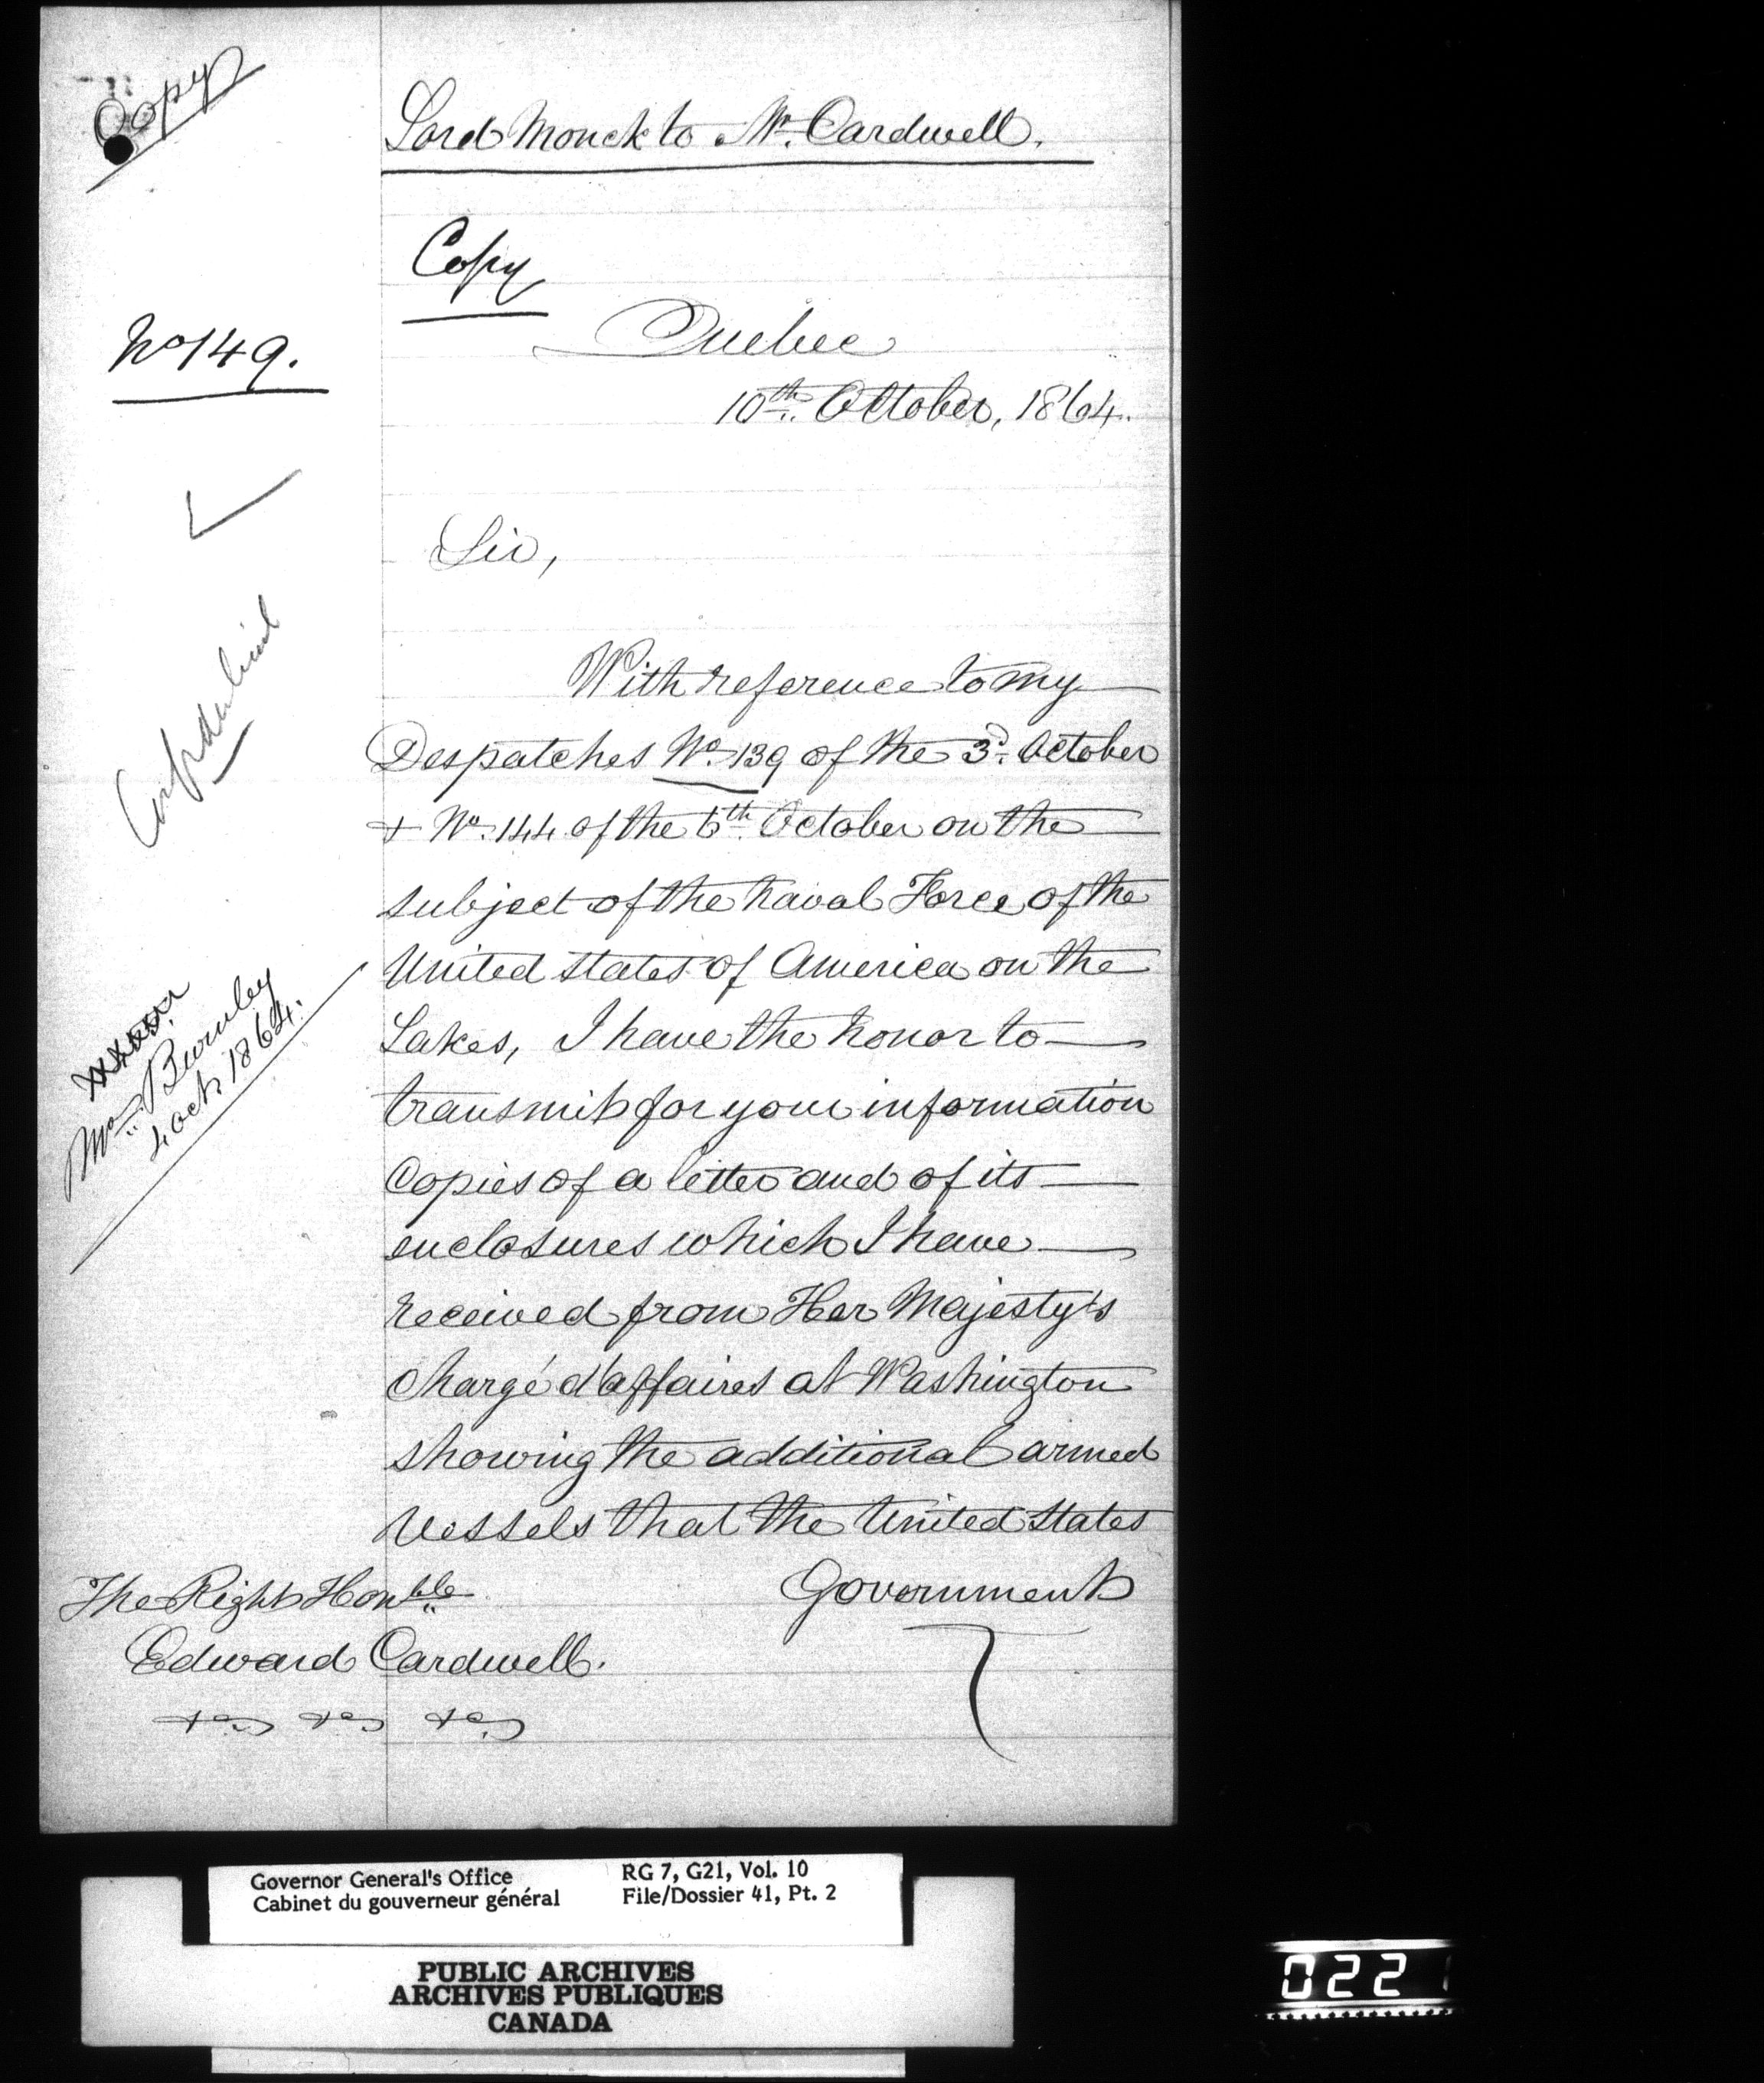 Copy
Lord Monck to Mr. Cardwell.
Copy
No 149.
Quebec
10th October, 1864.
Sir,
Confidential
With reference to my
Despatches No. 139 of the 3d. October
& No. 144 of the 6th October on the
subject of the Naval Force of the
United States of America on the
Lakes, I have the honor to
transmit for your information
Copies of a letter and of its
enclosures which I have
received from Her Majesty's
Chargé d'affaires at Washington
showing the additional armed
vessels that the United States
Government
Mr. Burnley
4 Oct. 1864.
The Right Honble
Edward Cardwell.
&c &c &c
Governor General's Office
Cabinet du gouverneur général
RG 7, G21, Vol. 10
File/Dossier 41, Pt. 2
PUBLIC ARCHIVES
ARCHIVES PUBLIQUES
CANADA
022